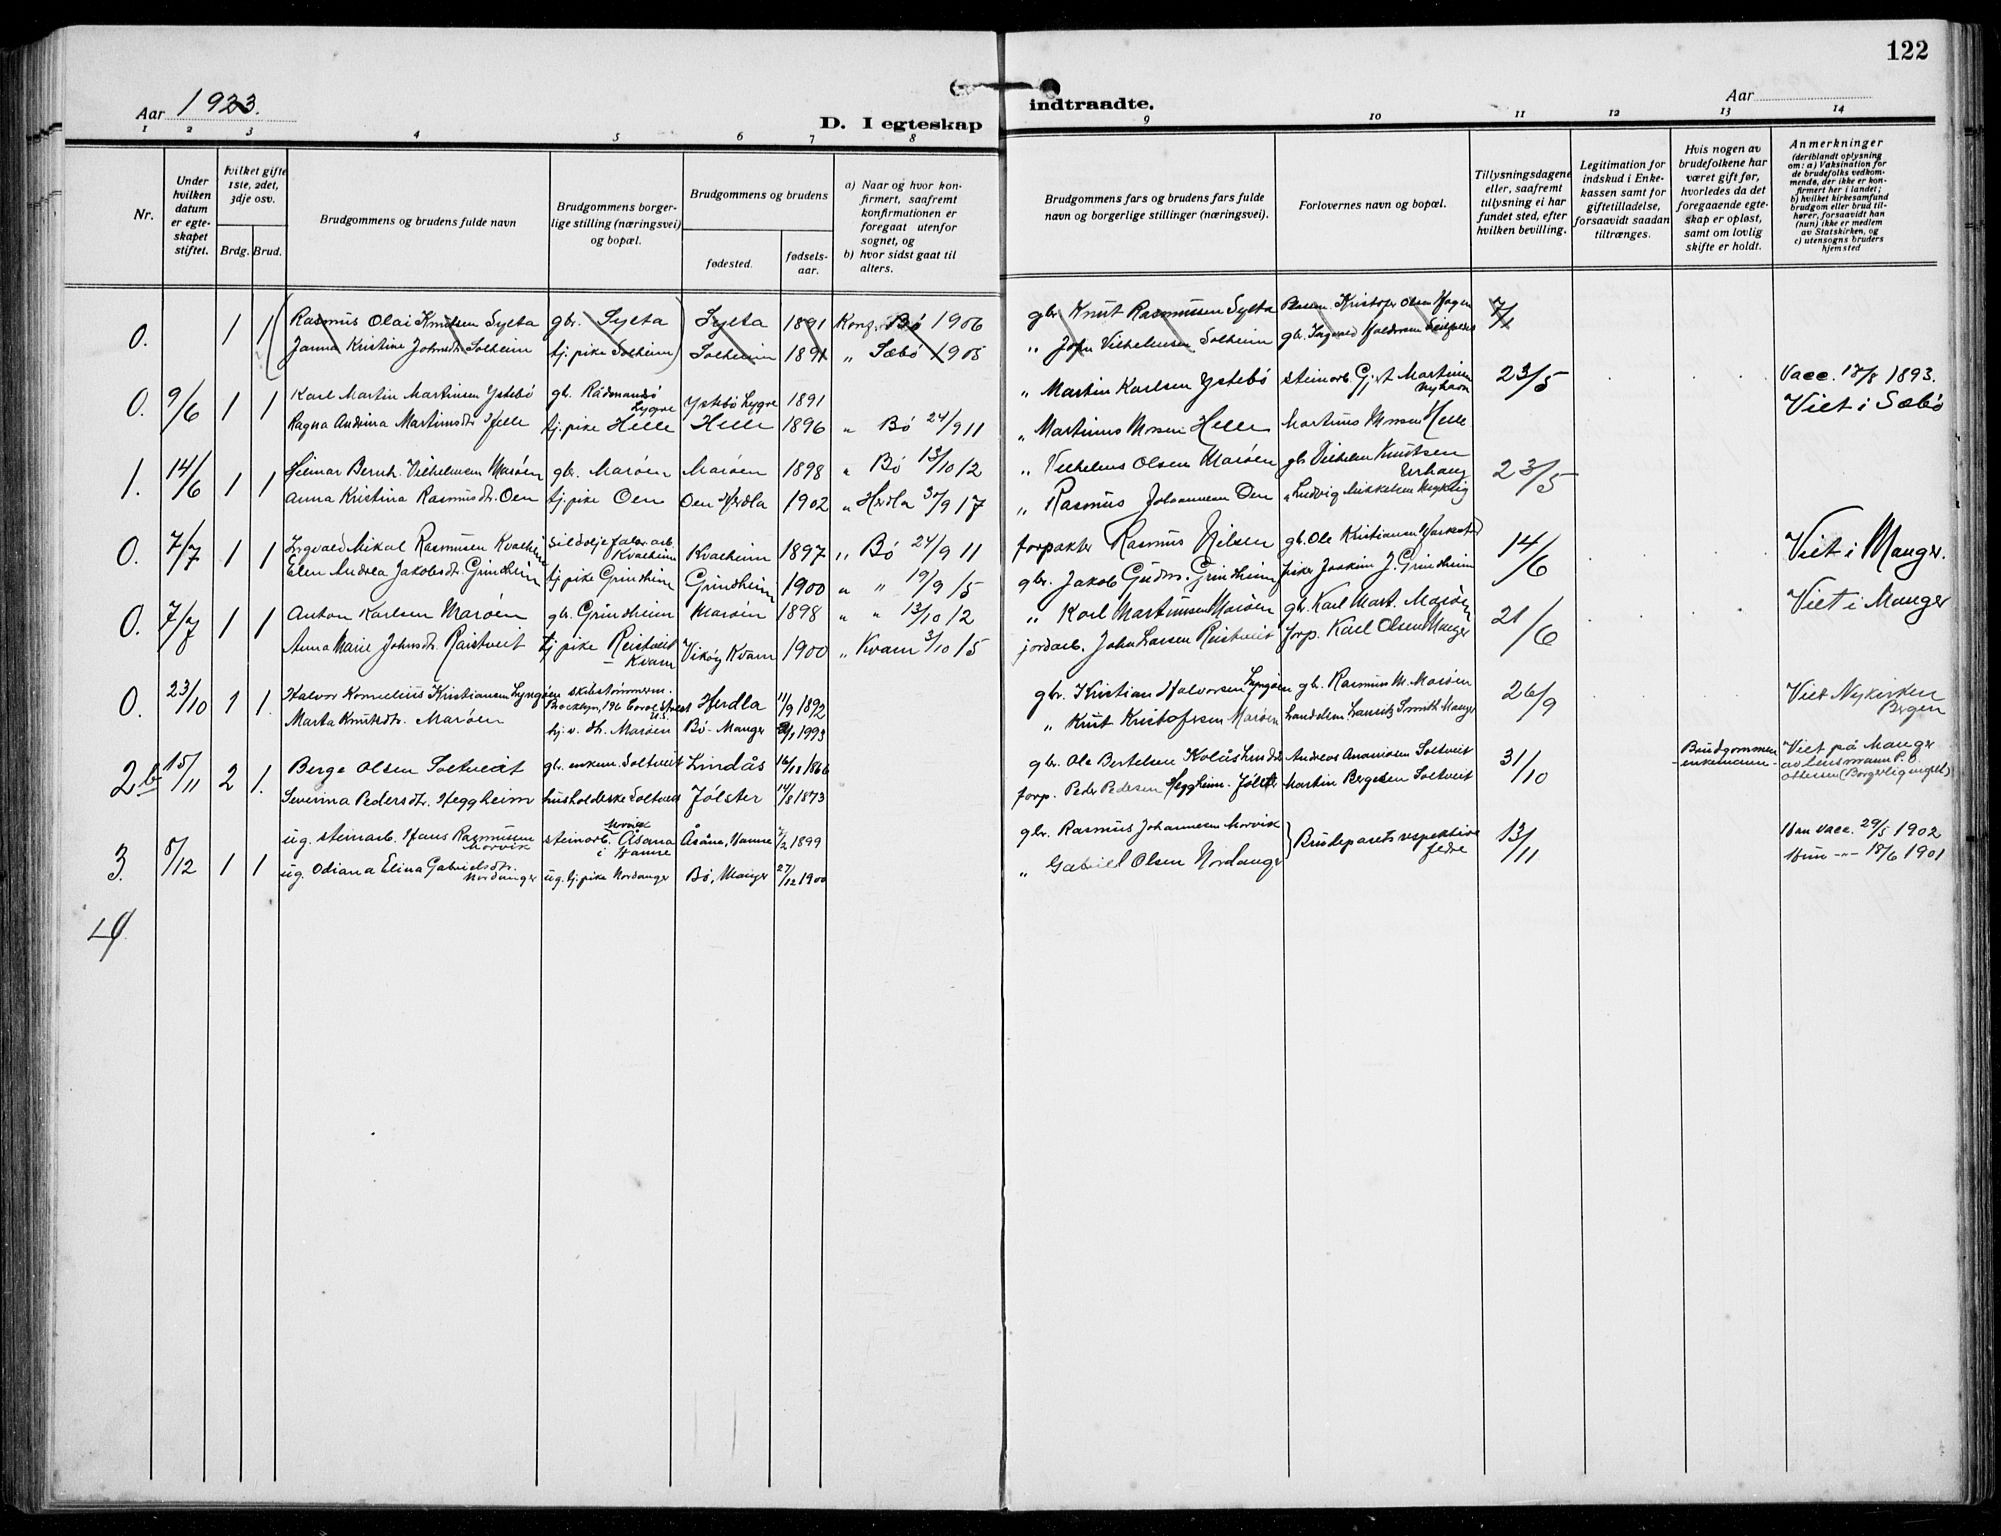 122
Aar 1923.
D. I egteskap
indtraadte.
Aar
1 2 3 4 5 6 7 8 9 10 11 12 13 14
Nr.
Under hvilken datum er egteskapet stiftet.
hvilket gifte 1ste, 2det, 3dje osv.
Brdg. Brud.
Brudgommens og brudens fulde navn
Brudgommens borgerlige stilling (næringsvei) og bopæl.
Brudgommens og brudens
fødested.
fødselsaar.
a) Naar og hvor konfirmert, saafremt konfirmationen er foregaat utenfor sognet, og
b) hvor sidst gaat til alters.
Brudgommens fars og brudens fars fulde navn og borgerlige stillinger (næringsvei).
Forlovernes navn og bopæl.
Tillysningsdagene eller, saafremt tillysning ei har fundet sted, efter hvilken bevilling.
Legitimation for indskud i Enkekassen samt for giftetilladelse, forsaavidt saadan tiltrænges.
Hvis nogen av brudefolkene har været gift før, hvorledes da det foregaaende egteskap er opløst, samt om lovlig skifte er holdt.
Anmerkninger
(deriblandt oplysning om: a) Vaksination for de brudefolks vedkommende, der ikke er konfirmert her i landet; b) hvilket kirkesamfund brudgom eller brud tilhører, forsaavidt han (hun) ikke er medlem av Statskirken, og c) utensogns bruders hjemsted
0. 1 1 Rasmus Olai Knutsen Sylta gbr. Sylta Sylta 1891 Konf. Bø 1906 gbr Knut Rasmussen Sylta Kristofer Olsen
Janna Kristine Johnsdtr. Solheim tj. pike Solheim Solheim 1891 " Sæbø 1905 " John Vilhelmsen Solheim gbr. Ingvald
0. 9/6 1 1 Karl Martin Martinsen Ystebø gbr. Rådmandsø Lygre Ystebø Lygre 1891 " Martin Karlsen Ystebø steinarb. Gjert Martinsen Nyhavn 23/5 Vacc. 18/8 1893.
Ragna Andrina Martinusdtr. Helle tj. pike Helle Helle 1896 " Bø 24/9 11 " Martinus Monsen Helle Martinus Monsen Helle Viet i Sæbø
1. 14/6 1 1 Hilmar Bernh. Vilhelmsen Marøen gbr. Marøen Marøen 1898 " Bø 13/10 12 " Vilhelms Olsen Marøen gbr Vilhelm Knutsen 23/5
Anna Kristina Rasmusdtr. Oen tj. pike Oen Oen Herdla 1902 " Herdla 30/9 17 " Rasmus Johannesen Oen " Ludvig Mikkelsen
0. 7/7 1 1 Ingvald Mikal Rasmusen Kvalheim sildoljefabr. arb. Kvalheim Kvalheim 1897 " Bø 24/9 11 forpakter Rasmus Nilsen gbr. Ole Kristiansen 14/6 Viet i Manger.
Elen Andrea Jakobsdtr. Grindheim tj. pike Grindheim Grindheim 1900 " " 19/9 15 gbr. Jakob Gudm. Grindheim fisker Joakim J. Grindheim
0. 7/7 1 1 Anton Karlsen Marøen gbr. Grindheim Marøen 1898 " " 13/10 12 " Karl Martinusen Marøen gbr. Karl Mart. Marøen 21/6 Viet i Manger
Anna Marie Johnsdtr. Reistveit tj. pike Reistveit Kvam Vikøy Kvam 1900 " Kvam 3/10 15 jordarb. John Larsen Reistveit forp. Karl Olsen Manger
0. 23/10 1 1. Halvor Kornelius Kristiansen Lyngøen skibstømmerm. Brooklyn, 196 U.S. Herdla 11/9 1892 gbr. Kristian Halvorsen Lyngøen gbr. Rasmus M. Marøen 26/9 Viet Nykirken Bergen
Marta Knutsdtr. Marøen hj. v. dtr. Marøen Bø - Manger 1993 " Knut Kristofersen Marøen Landhdm. Lauritz Smith Manger
2b 15/11 2 1. Berge Olsen Soltveit gbr. enkem. Soltveit Lindås 16/11 1866 gbr. Ole Bertelsen Kolås Lindås Andreas Ananiasen Soltveit 31/10 Brudgommen - enkemann - Viet på Manger av lensmann P. O. Ottesen (Borgerlig vigsel)
Severina Pedersdtr. Heggheim husholderske Soltveit Jølster 14/8 1873 forp. Peder Pedersen Heggheim - Jølster Martin Bergesen Soltveit
3. 8/12 1 1 ug. steinarb. Hans Rasmussen Morvik steinarb. Morvik Åsane i Hamre Åsane, Hamre 1899 gbr. Rasmus Johannesen Morvik Brudeparets respektive fedre 13/11 Han vacc. 29/5 1902
ug. Odiana Elina Gabrielsdtr. Nordanger ug. tj. pike Nordanger Bø, Manger 27/12 1900 " Gabriel Olsen Nordanger Hun -"- 18/6 1901